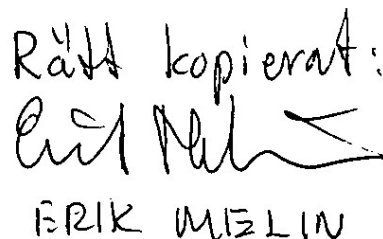 Rätt kopierat:
Erik Melin
ERIK MELIN